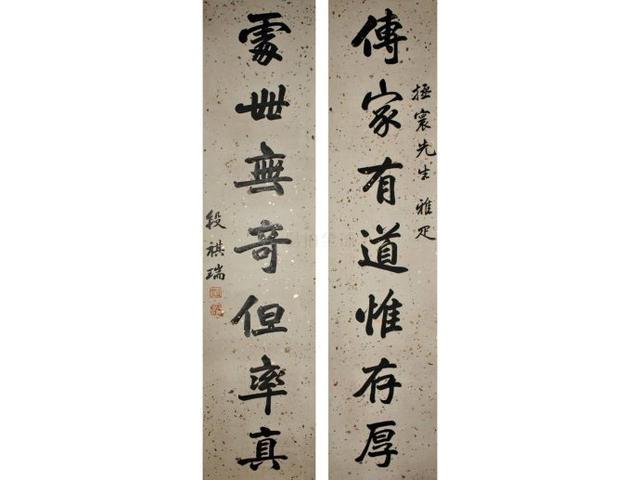 傳家有道惟存厚
拯宸先生雅疋
處世無奇但率真
段祺瑞